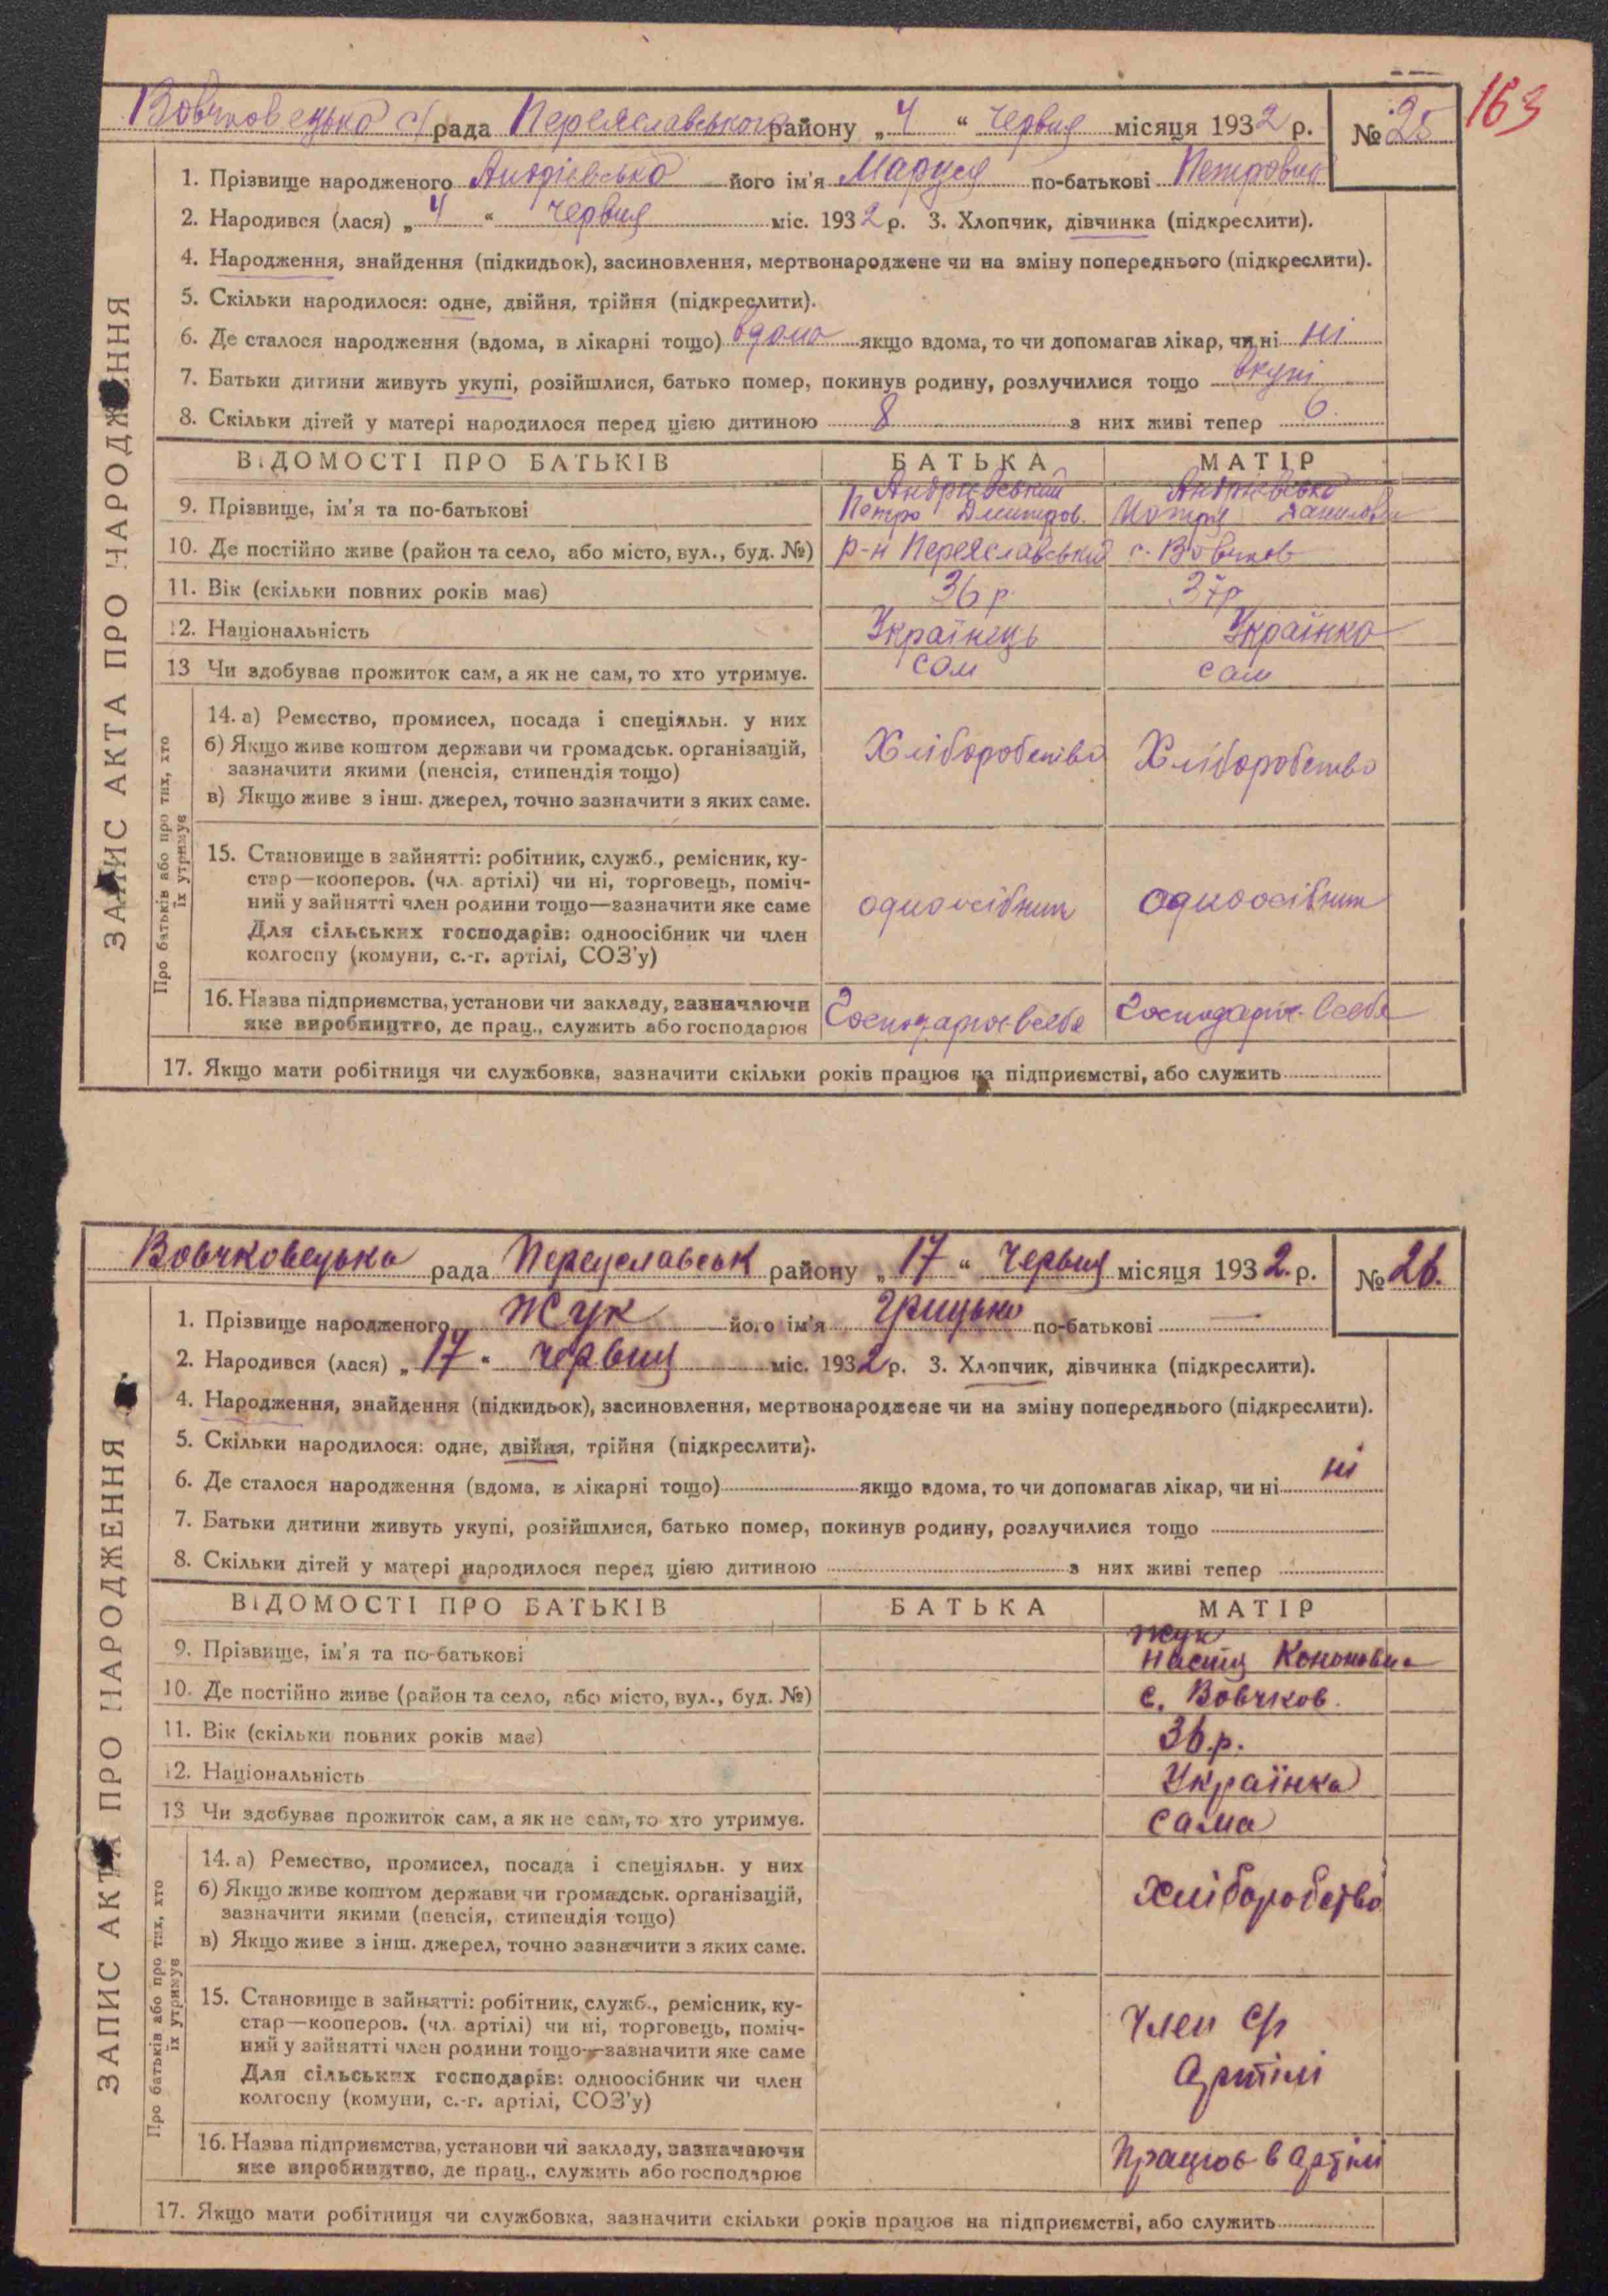 163
Вовчковецька с/рада Переяславського району „4“ червня місяця 1932 р. № 25
1. Прізвище народженого Андрієвська його ім'я Маруся по-батькові Петровна
2. Народився (лася) „4“ червня міс. 1932 р. 3. Хлопчик, дівчинка (підкреслити).
4. Народження, знайдення (підкидьок), засиновлення, мертвонароджене чи на зміну попереднього (підкреслити).
5. Скільки народилося: одне, двійня, трійня (підкреслити).
6. Де сталося народження (вдома, в лікарні тощо) вдома якщо вдома, то чи допомагав лікар, чи ні ні
7. Батьки дитини живуть укупі, розійшлися, батько помер, покинув родину, розлучилися тощо вкупі
8. Скільки дітей у матері народилося перед цією дитиною 8 з них живі тепер 6.
ЗАПИС АКТА ПРО НАРОДЖЕННЯ
ВІДОМОСТІ ПРО БАТЬКІВ БАТЬКА МАТІР
Андриевський Андриевська
9. Прізвище, ім'я та по-батькові Петро Дмитров. Мотря Данилов
10. Де постійно живе (район та село, або місто, вул., буд. №) р-н Переяславський с. Вовчков
11. Вік (скільки повних років має) 36 р 37р
12. Національність Українець Українка
13 Чи здобуває прожиток сам, а як не сам, то хто утримує. сам сам
Про батьків або про тих, хто їх утримує
14. а) Ремество, промисел, посада і спеціяльн. у них
б) Якщо живе коштом держави чи громадськ. організацій, Хліборобство Хліборобство
зазначити якими (пенсія, стипендія тощо)
в) Якщо живе з інш. джерел, точно зазначити з яких саме.
15. Становище в зайнятті: робітник, служб., ремісник, ку-
стар—кооперов. (чл. артілі) чи ні, торговець, поміч-
ний у зайнятті член родини тощо—зазначити яке саме одноосібник одноосібник
Для сільських господарів: одноосібник чи член
колгоспу (комуни, с.-г. артілі, СОЗ'у)
16. Назва підприємства, установи чи закладу, зазначаючи Господарює в себе Господарює в себе
яке виробництво, де прац., служить або господарює
17. Якщо мати робітниця чи службовка, зазначити скільки років працює на підприємстві, або служить
Вовчковецька рада Переуславськ району „17“ Червня місяця 1932. р. № 26.
1. Прізвище народженого Жук його ім'я Грицько по-батькові —
2. Народився (лася) „17“ червня міс. 1932 р. 3. Хлопчик, дівчинка (підкреслити).
4. Народження, знайдення (підкидьок), засиновлення, мертвонароджене чи на зміну попереднього (підкреслити).
5. Скільки народилося: одне, двійня, трійня (підкреслити).
6. Де сталося народження (вдома, в лікарні тощо) якщо вдома, то чи допомагав лікар, чи ні ні
7. Батьки дитини живуть укупі, розійшлися, батько помер, покинув родину, розлучилися тощо
8. Скільки дітей у матері народилося перед цією дитиною з них живі тепер
ЗАПИС АКТА ПРО НАРОДЖЕННЯ
ВІДОМОСТІ ПРО БАТЬКІВ БАТЬКА МАТІР
Жук
9. Прізвище, ім'я та по-батькові Настя Кононовна
10. Де постійно живе (район та село, або місто, вул., буд. №) с. Вовчков.
11. Вік (скільки повних років має) 36.р.
12. Національність Українка
13 Чи здобуває прожиток сам, а як не сам, то хто утримує. сама
Про батьків або про тих, хто їх утримує
14. а) Ремество, промисел, посада і спеціяльн. у них
б) Якщо живе коштом держави чи громадськ. організацій, хліборобство
зазначити якими (пенсія, стипендія тощо)
в) Якщо живе з інш. джерел, точно зазначити з яких саме.
15. Становище в зайнятті: робітник, служб., ремісник, ку-
стар—кооперов. (чл. артілі) чи ні, торговець, поміч- Член с/г
ний у зайнятті член родини тощо—зазначити яке саме
Для сільських господарів: одноосібник чи член артілі
колгоспу (комуни, с.-г. артілі, СОЗ'у)
16. Назва підприємства, установи чи закладу, зазначаючи Працює в артілі
яке виробництво, де прац., служить або господарює
17. Якщо мати робітниця чи службовка, зазначити скільки років працює на підприємстві, або служить